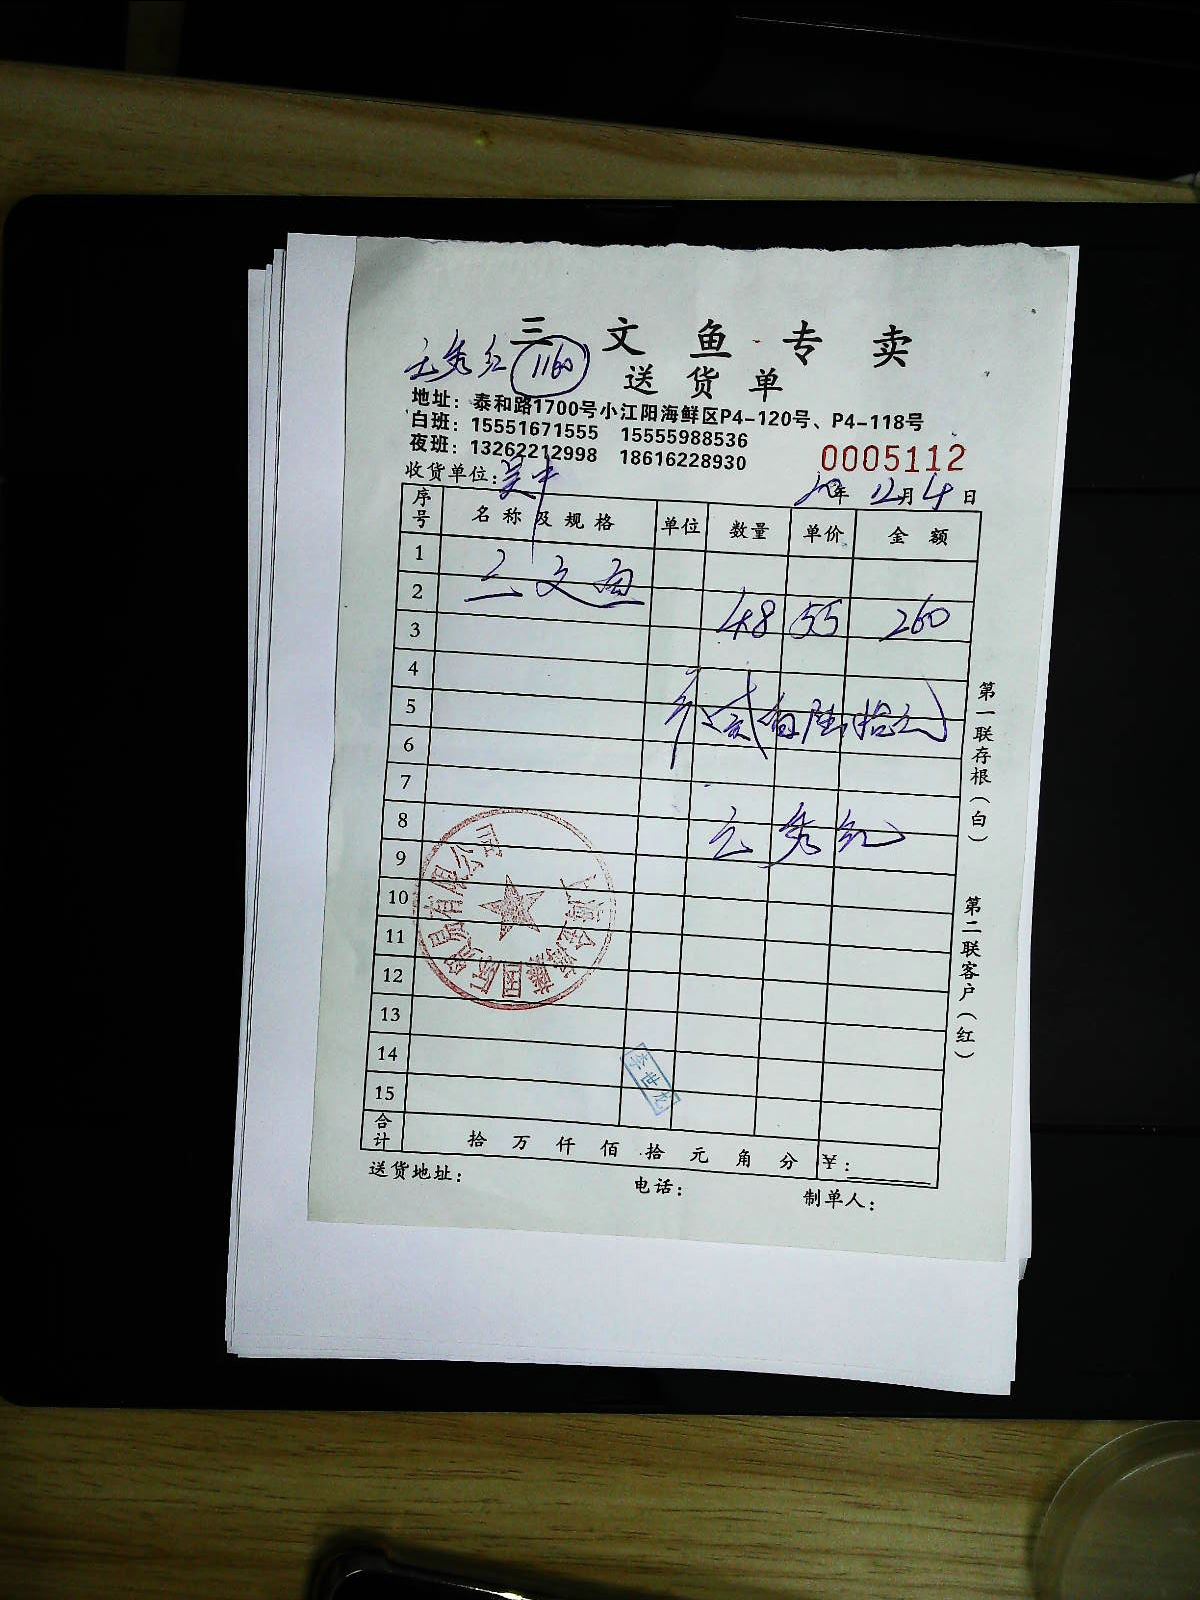 三文鱼专卖
1160
送货单
地址：泰和路1700号小江阳海鲜区P4-120号、P4-118号
白班：15551671555 15555988536
夜班：13262212998 18616228930
0005112
收货单位：吴中
20年 12月 4日
序号 名称及规格 单位 数量 单价 金额
1
2 三文鱼 48 55 260
3
4
5 贰佰陆拾元
6
7
8
9
10
11
12
13
14
15
合计 拾 万 仟 佰 拾 元 角 分 ￥：
送货地址： 电话： 制单人：
第一联存根（白）
第二联客户（红）
李世龙